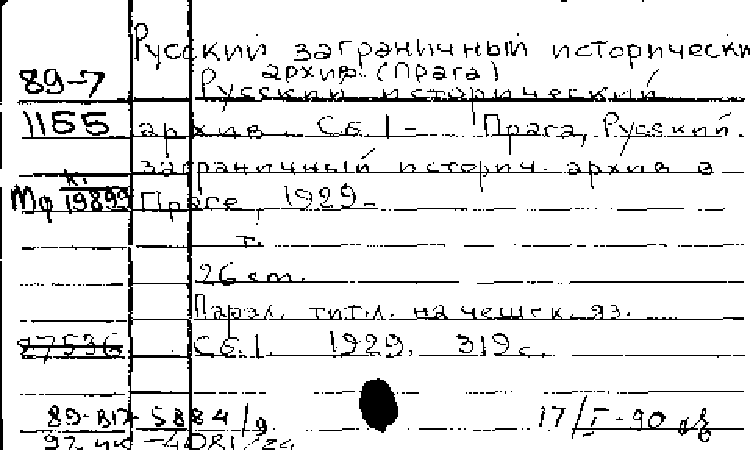 Русский заграничный исторически
архив (Прага)
89-7 Русский исторический
1155 архив. Сб. 1- Прага, Русский
заграничный историч. архив в
Мф к. 19899 Праге, 1929-
т.
26 cm.
Парал. тит. л. на чешск. яз.
27536 Сб. 1. 1929. 319 с.
89-ВП-5884/9 17/I-90